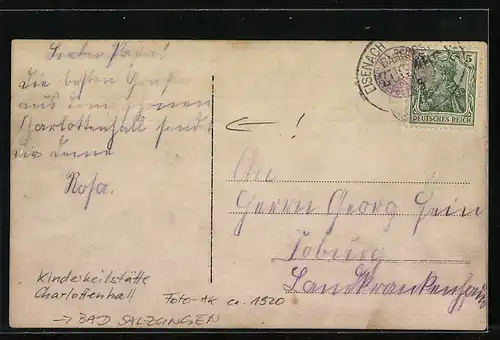 Lieber Papa!
Die besten Grüße
aus dem schönen
Charlottenhall sendet
dir deine
Rosa.
←!
EISENACH
5 5
DEUTSCHES REICH
An
Herrn Georg Hein
Coburg
Landkrankenhaus
Kinderheilstätte
Charlottenhall
Foto-AK ca. 1920
→ BAD SALZUNGEN